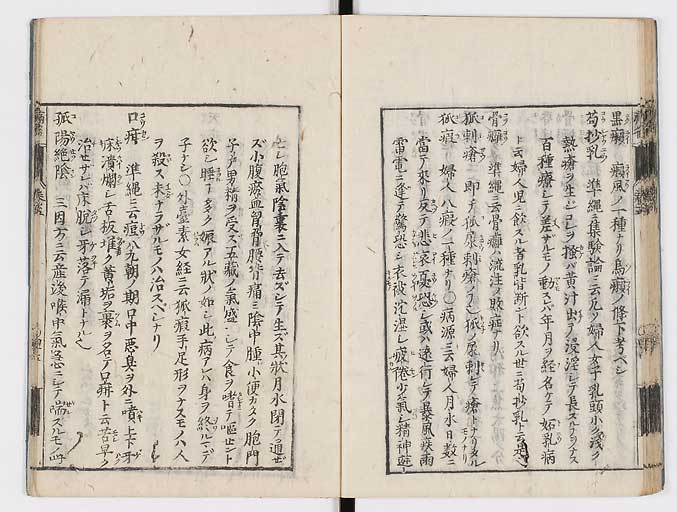 黒癜 癜風ノ一種ナリ烏癜ノ條下考ベシ
苟抄乳 準縄ニ集驗論ニ云凡ソ婦人女子乳頭小ク淺ク
熱瘡ヲ生ジコレヲ搔バ黄汁出テ浸淫シテ長ス
百種療シテ差ザルモノ動スレバ年月ヲ經名ケテ妬乳病
ト云婦人児ニ飲スル者乳皆断ント欲スル世ニ苟抄乳ト云是
骨癰 準縄ニ云骨癰ハ流注ノ敗症ナリ
狐刺瘡 即チ狐尿刺瘡ナリ狐ノ尿刺シテ瘡トナリタル
狐瘕 婦人八瘕ノ一種ナリ〇病源ニ云婦人月水日數ニ
當テ來リ反テ悲哀憂恐シ或ハ遠行シテ暴風疾雨
雷電ニ逢テ驚恐シ衣被沈湿シ疲倦少氣シ精神遊
セシ胞氣陰裏ニ入テ去ズシテ生ズ其状月水閉テ通ゼ
ズ小腹瘀血胷脊腰背痛ミ陰中腫小便カタク胞門
子戸男精ヲ受ズ五藏ノ氣盛ニシテ食ヲ嗜テ嘔セント
欲シ唾ヿ多ク娠アル状ノ如シ此病アレバ身ヲ終ルマデ
子ナシ〇外臺素女經ニ云狐瘕手足形ヲナスモノハ人
ヲ殺ス未ナラザルモノハ治スベシナリ
口疳 準縄ニ云痘八九朝ノ期口中悪臭ヲ外ニ噴上下牙
床潰爛シ舌板堆ク黄垢ヲ裹ヲ名テ口疳ト云苦早ク
治セザレバ床脱シ牙落テ漏トナル
孤陽絶陰 三因方ニ云産後喉中氣急ニシテ喘スルモノ